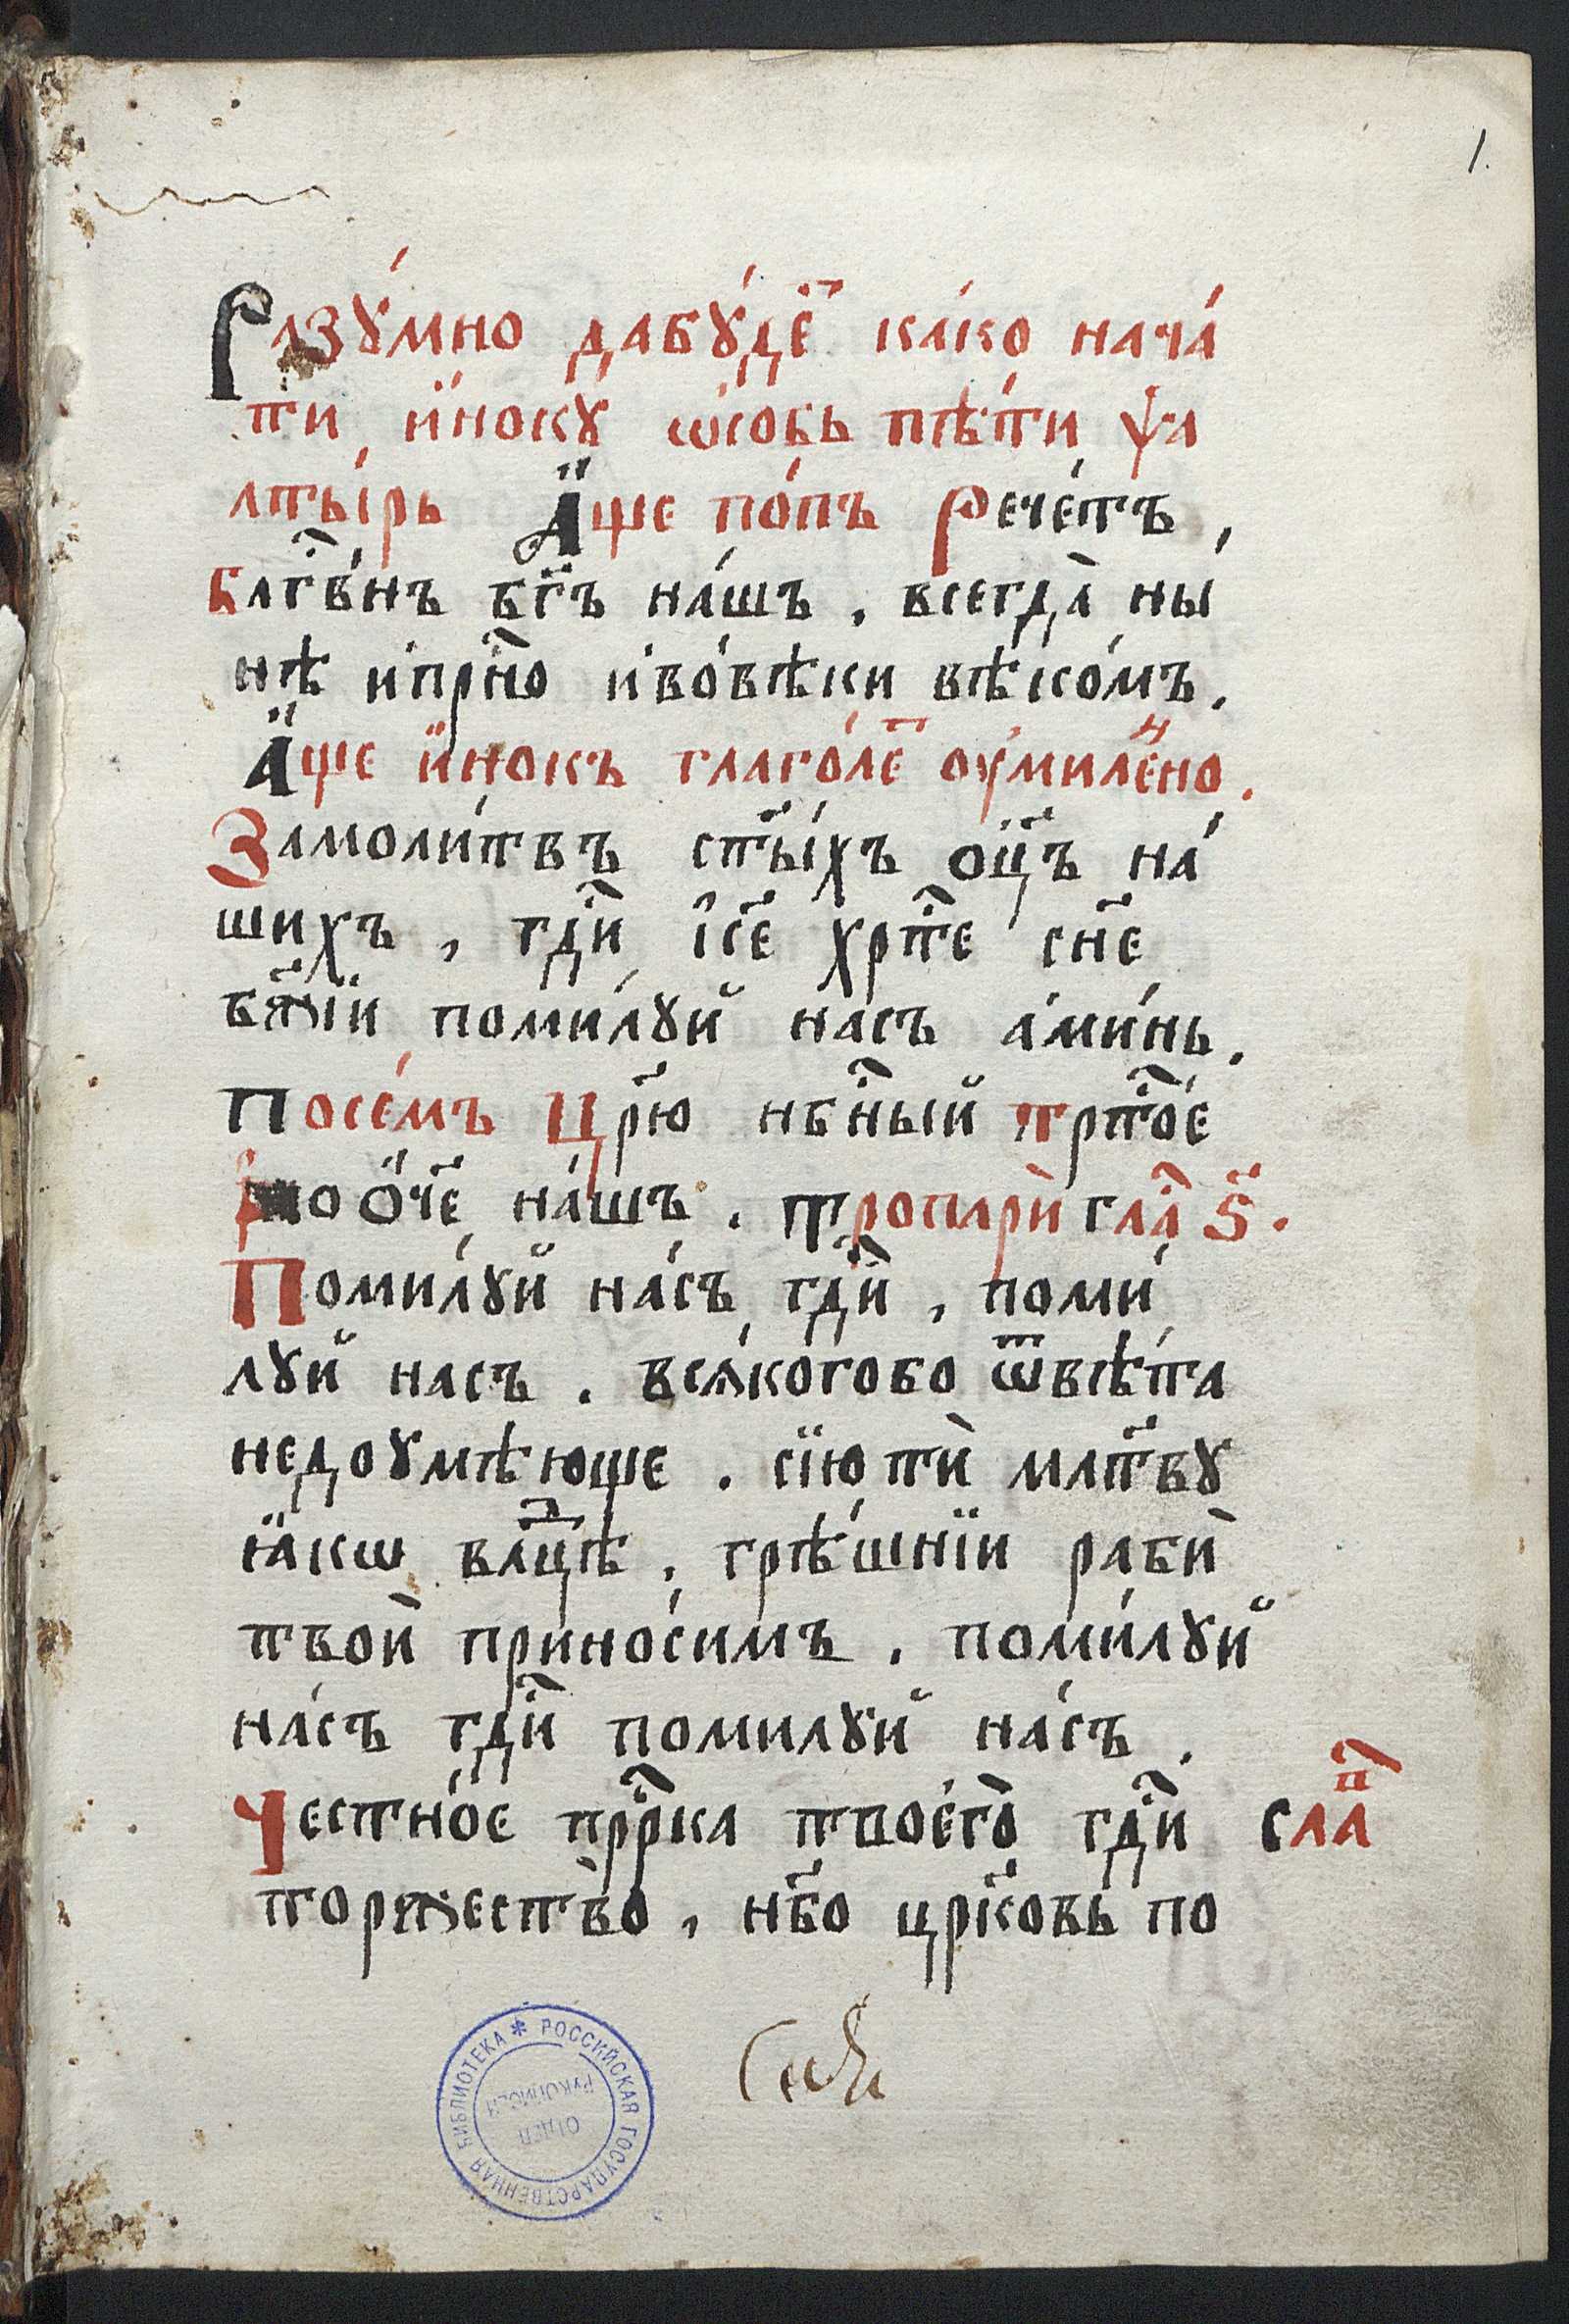 1.
Разꙋ́мно дабꙋ́де҃ ка́ко нача́
ти и҆́нокꙋ ѡ҆собь пѣ́ти ѱа
лты́рь А҆́ще по́пъ рече́тъ,
Блг҃ве́нъ бг҃ъ на́шъ. всегда̀ ны́
нѣ и҆при҃но и҆во́вѣки вѣко́мъ.
А҆́ще и҆́нокъ глаго́ле҃ оу҆миле́нно.
Замоли́твъ ст҃ы́хъ ѻц҃ъ на́
шихъ, гд҃и і҆с҃е хрт҃е сн҃е
бж҃їи поми́лꙋй на́съ а҆ми́нь.
Посе́мъ Цр҃ю нбн҃ый трт҃ое
по о҆ч҃е на́шъ. тропари̂ гла҃ ѕ҃.
Поми́лꙋй на́съ гд҃и, поми́
лꙋй насъ. вся́когобо ѿвѣ́та
недоꙋмѣ́юще. сїю̀ тѝ млт҃вꙋ
ꙗ҆́кѡ влц҃ѣ, грѣ́шнїи рабѝ
твоѝ прино́симъ. поми́лꙋй
на́съ гд҃и поми́лꙋй на́съ.
Честно́е прр҃ка твоегѡ̀ гд҃и сла҃
торжество̀, нб҃о цр҃ковь по
РОССИЙСКАЯ ГОСУДАРСТВЕННАЯ БИБЛИОТЕКА
ОТДЕЛ
РУКОПИСЕЙ